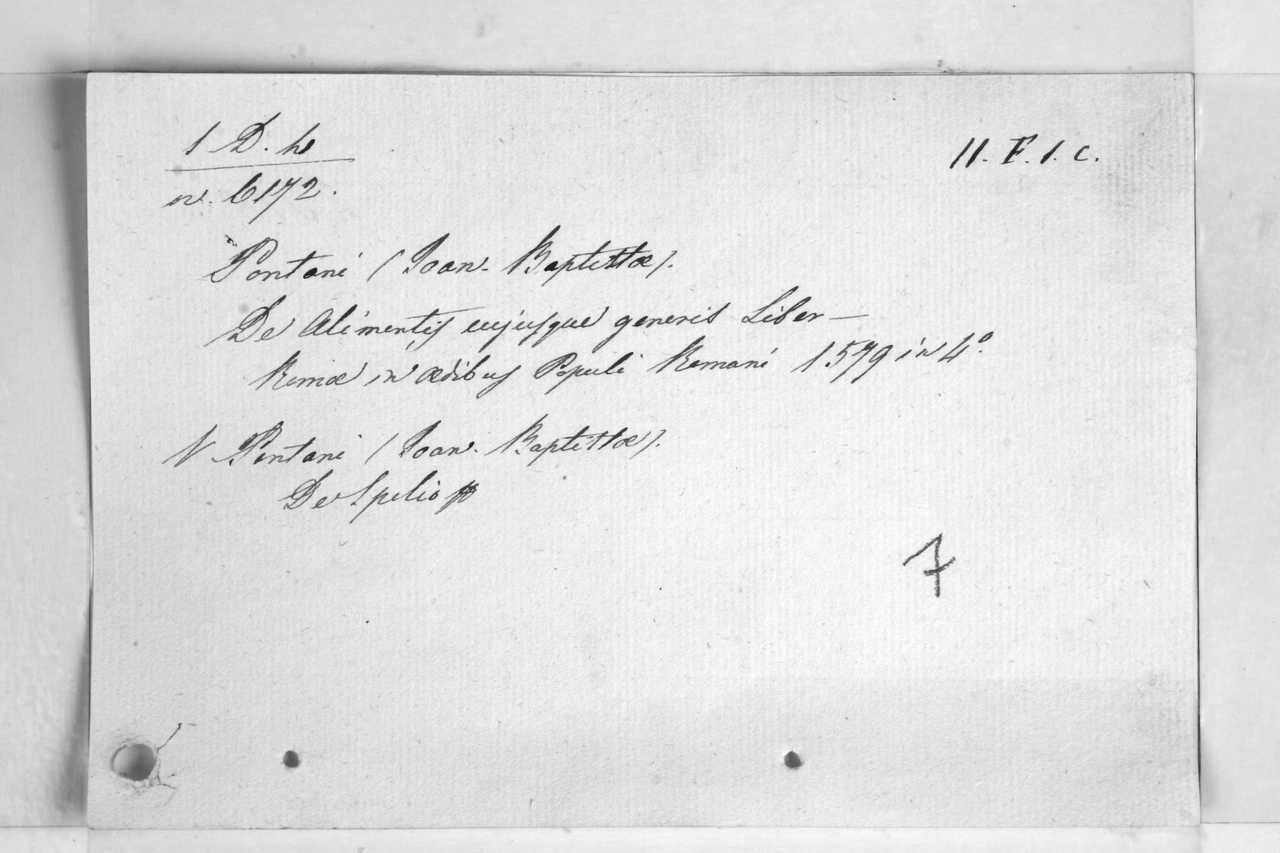 1 D. h
II. F. 1. c.
n. 6172.
Pontani (Joan. Baptistæ).
De Alimentis cujusque generis Liber —
Romæ in ædibus Populi Romani 1579 in 4º.
V Pontani (Joan. Baptistæ).
De Spolio
7